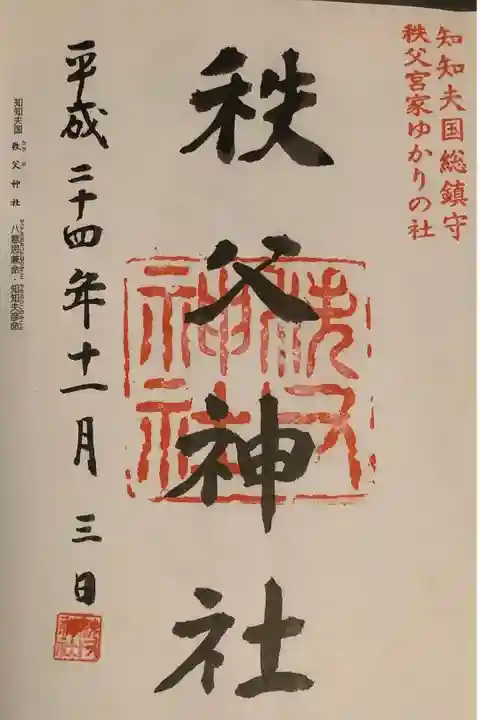 知知夫国総鎮守
秩父宮家ゆかりの社
秩父神社
秩父神社
平成二十四年十一月三日
知知夫国 秩父神社 八意思兼命・知知夫彦命